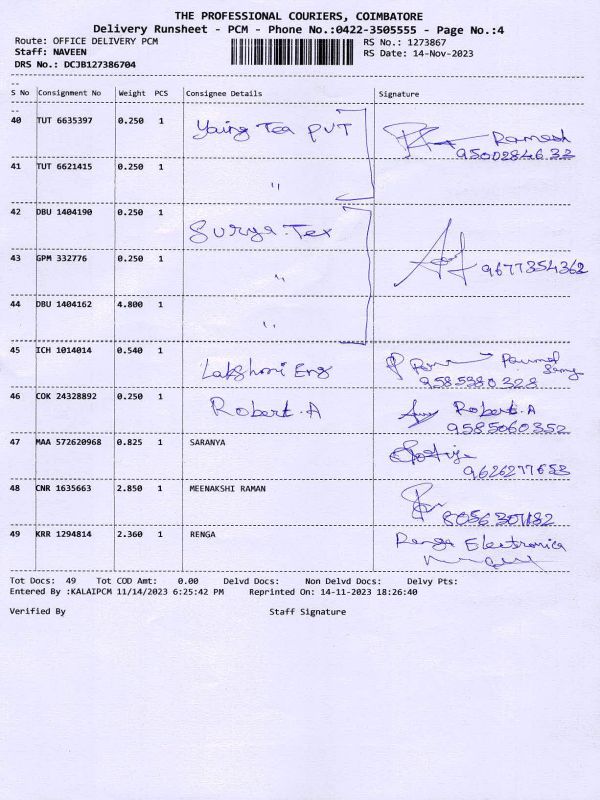 THE PROFESSIONAL COURIERS, COIMBATORE
Delivery Runsheet - PCM - Phone No.:0422-3505555 - Page No.:4
Route: OFFICE DELIVERY PCM RS No.: 1273867
Staff: NAVEEN RS Date: 14-Nov-2023
DRS No.: DCJB127386704
S No Consignment No Weight PCS Consignee Details Signature
40 TUT 6635397 0.250 1 Tea PVT Ramesh
9500284632
41 TUT 6621415 0.250 1 "
42 DBU 1404190 0.250 1 Surya.Tex
43 GPM 332776 0.250 1 " 9677354362
44 DBU 1404162 4.800 1 "
45 ICH 1014014 0.540 1 Lakshmi Eng
9585380328
46 COK 24328892 0.250 1 Robert.A Robert.A
9585060352
47 MAA 572620968 0.825 1 SARANYA
9626277653
48 CNR 1635663 2.850 1 MEENAKSHI RAMAN
49 KRR 1294814 2.360 1 RENGA Renga Electronica
Tot Docs: 49 Tot COD Amt: 0.00 Delvd Docs: Non Delvd Docs: Delvy Pts:
Entered By :KALAIPCM 11/14/2023 6:25:42 PM Reprinted On: 14-11-2023 18:26:40
Verified By Staff Signature